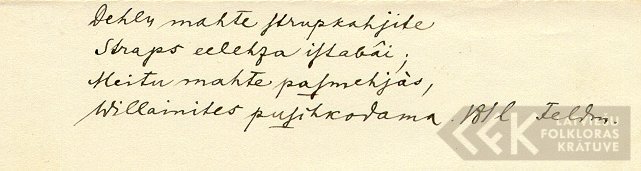 Dehlu mahte strupkahjite
Straps eelehza istabâi;
Meitu mahte pasmehjâs,
Willainites pusihkodama. Feldm.
LATVIEŠU
FOLKLORAS
KRĀTUVE